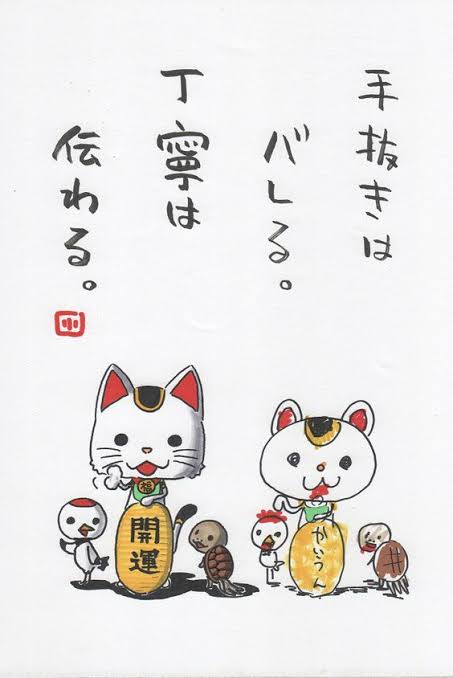 手抜きは
バレる。
丁寧は
伝わる。
福
開運
かいうん